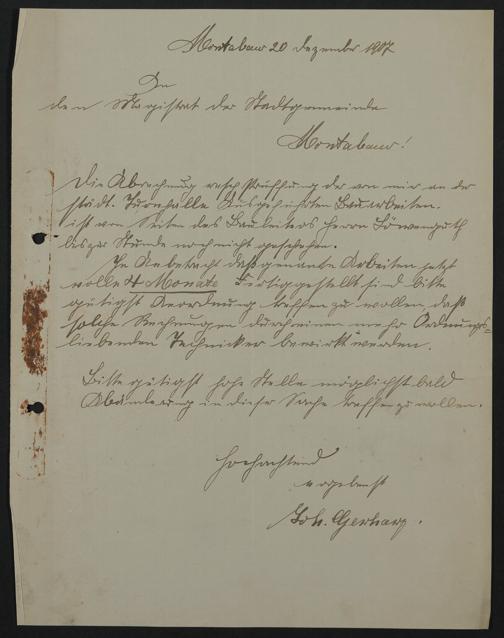 Montabaur 20 Dezember 1907
An
den Magistrat der Stadtgemeinde
Montabaur!
Die Abrechnung resp. Prüffung der von mir an der
städt. Turnhalle Ausgeführten Bauarbeiten.
ist von Seiten des Bauleiters Herrn Löwenguth
bis zur Stunde noch nicht geschehen.
In Anbetracht daß genante Arbeiten jetzt
volle 4 Monate Fertiggestellt sind bitte
gütigst Anordnung treffen zu wollen, daß
solche Rechnungen durch einen mehr Ordnungs-
liebenden Techniker bewirkt werden.
Bitte gütigst hohe Stelle möglichst bald
Abänderung in dieser Sache treffen zu wollen.
Hochachtend
ergebenst
Joh. Gerharz.